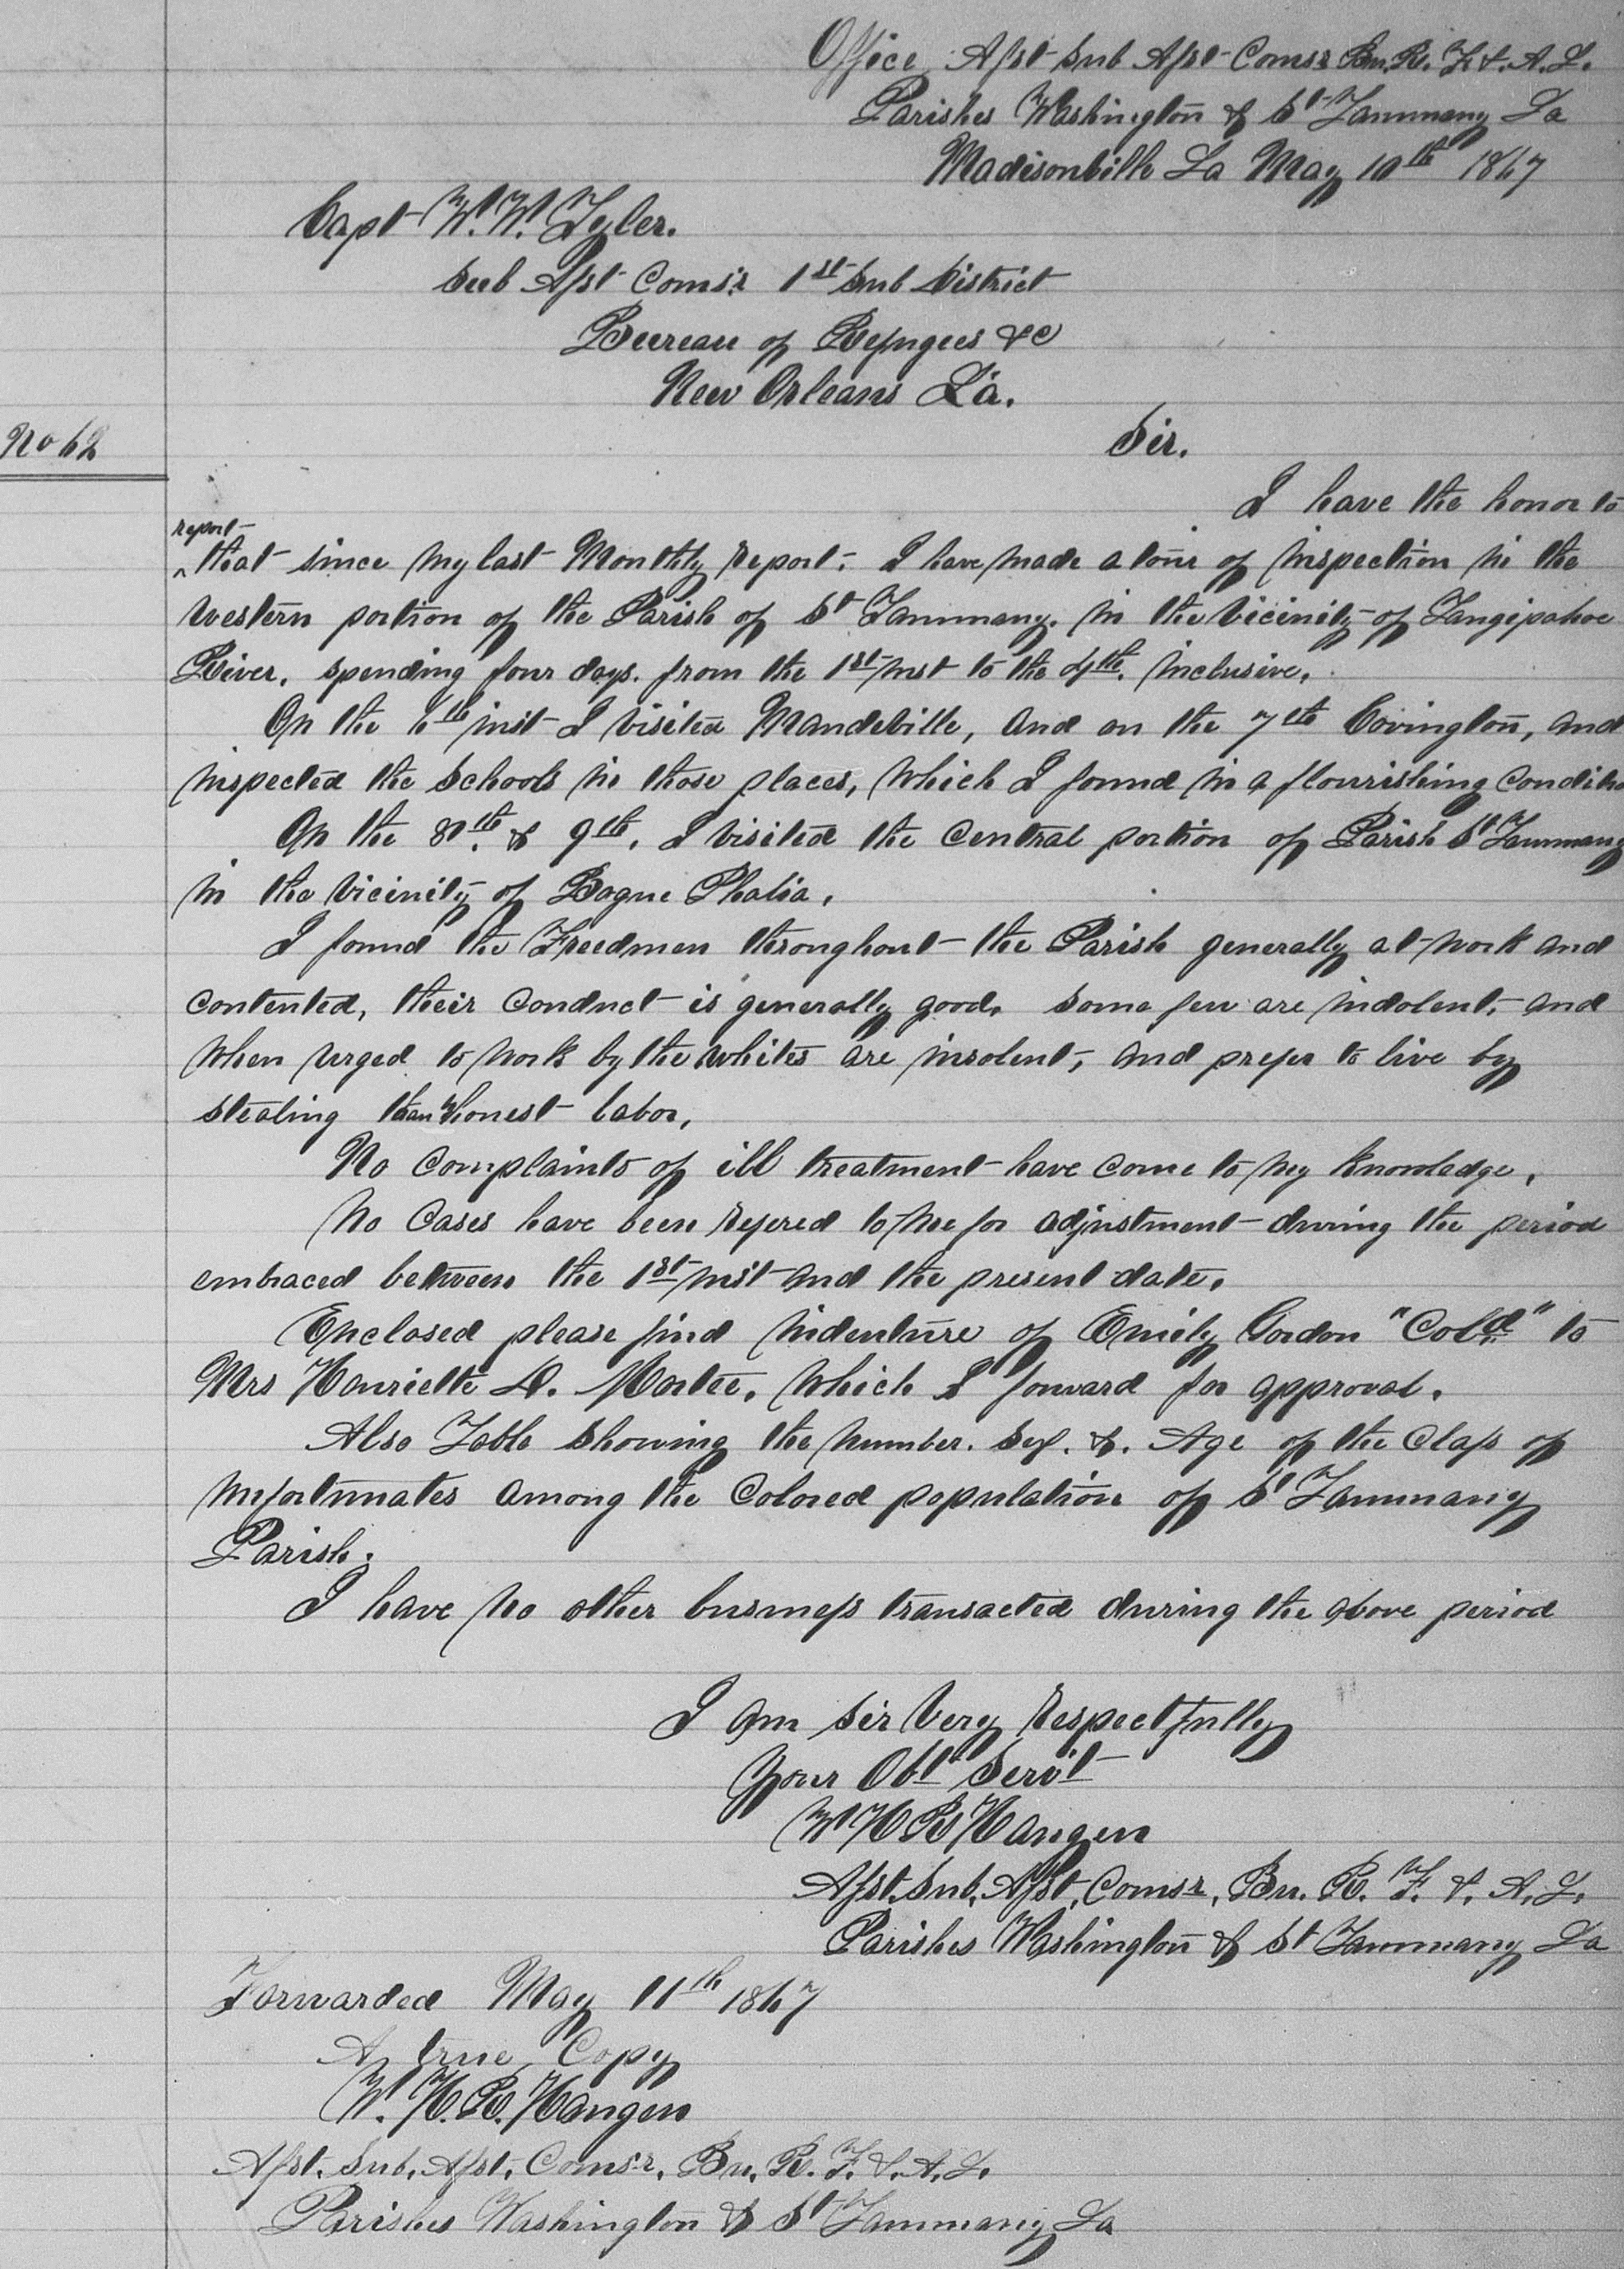 Office Asst Sub Asst Comsr Bu. R. F. & A. L.
Parishes Washington & St Tammany La
Madisonville La May 10th 1867
Capt W. W. Tyler.
Sub Asst Comsr 1st Sub District
Bureau of Refugees &c
New Orleans La.
No 62
Sir.
I have the honor to
report
^ that since my last Monthly report. I have made a tour of inspection in the
western portion of the Parish of St Tammany. in the vicinity of Tangipahoe
River. spending four days. from the 1st inst to the 4th. inclusive.
On the 6th inst I visited Mandeville, and on the 7th Covington, and
inspected the schools in those places, which I found in a flourishing conditio
On the 8th. & 9th. I visited the central portion of Parish St Tammany
in the vicinity of Bogue Phalia.
I found the Freedmen throughout the Parish generally at work and
contented, their conduct is generally good. some few are indolent, and
when urged to work by the whites are insolent, and prefer to live by
stealing than honest labor.
No complaints of ill treatment have come to my knowledge.
No cases have been refered to me for adjustment during the period
embraced between the 1st inst and the present date.
Enclosed please find indenture of Emily Gordon "Cold" to
Mrs Henriette D. which I forward for approval.
Also Table showing the number. Sex. &. Age of the class of
unfortunates among the Colored population of St Tammany
Parish.
I have no other business transacted during the above period
I am Sir Very Respectfully
Your Obt Servt
W H R Hangen
Asst. Sub. Asst. Comsr. Bu. R. F. &. A. L.
Parishes Washington & St Tammany La
Forwarded May 11th 1867
A true Copy
W. H. R. Hangen
Asst. Sub. Asst. Comsr. Bu. R. F. &. A. L.
Parishes Washington & St Tammany La